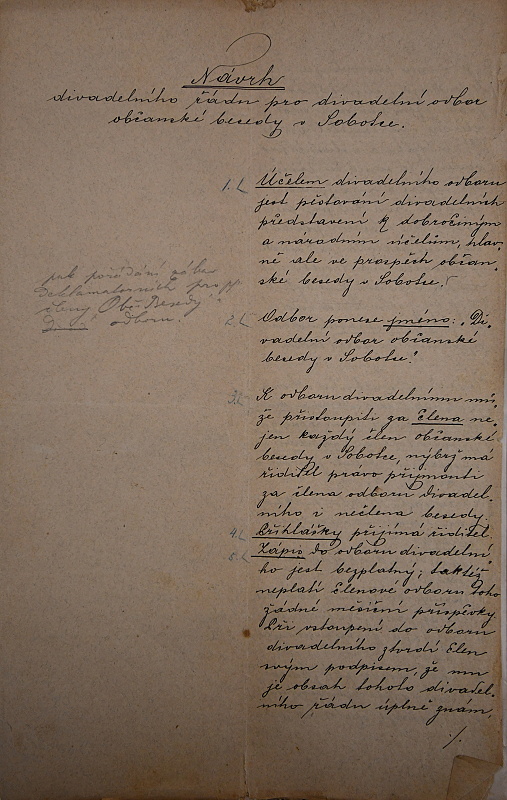 Návrh
divadelního řádu pro divadelní odbor
občanské besedy v Sobotce.
1./ Účelem divadelního odboru
jest pěstování divadelních
představení k dobročinným
a národním účelům, hlav-
ně ale ve prospěch občan-
ské besedy v Sobotce.
pak pořádání
deklamatorních pro
členy Obč. Besedy
odboru.
2./ Odbor ponese jméno: „Di-
vadelní odbor občanské
besedy v Sobotce."
3./ K odboru divadelnímu mů-
že přistoupiti za člena ne-
jen každý člen občanské
besedy v Sobotce, nýbrž má
ředitel právo přijmouti
za člena odboru divadel-
ního i nečlena besedy.
4./ Přihlášky přijímá ředitel.
5./ Zápis do odboru divadelní-
ho jest bezplatný; taktéž
neplatí členové odboru toho
žádné měsíční příspěvky.
Při vstoupení do odboru
divadelního stvrdí člen
svým podpisem, že mu
je obsah tohoto divadel-
ního řádu úplně znám,
./.